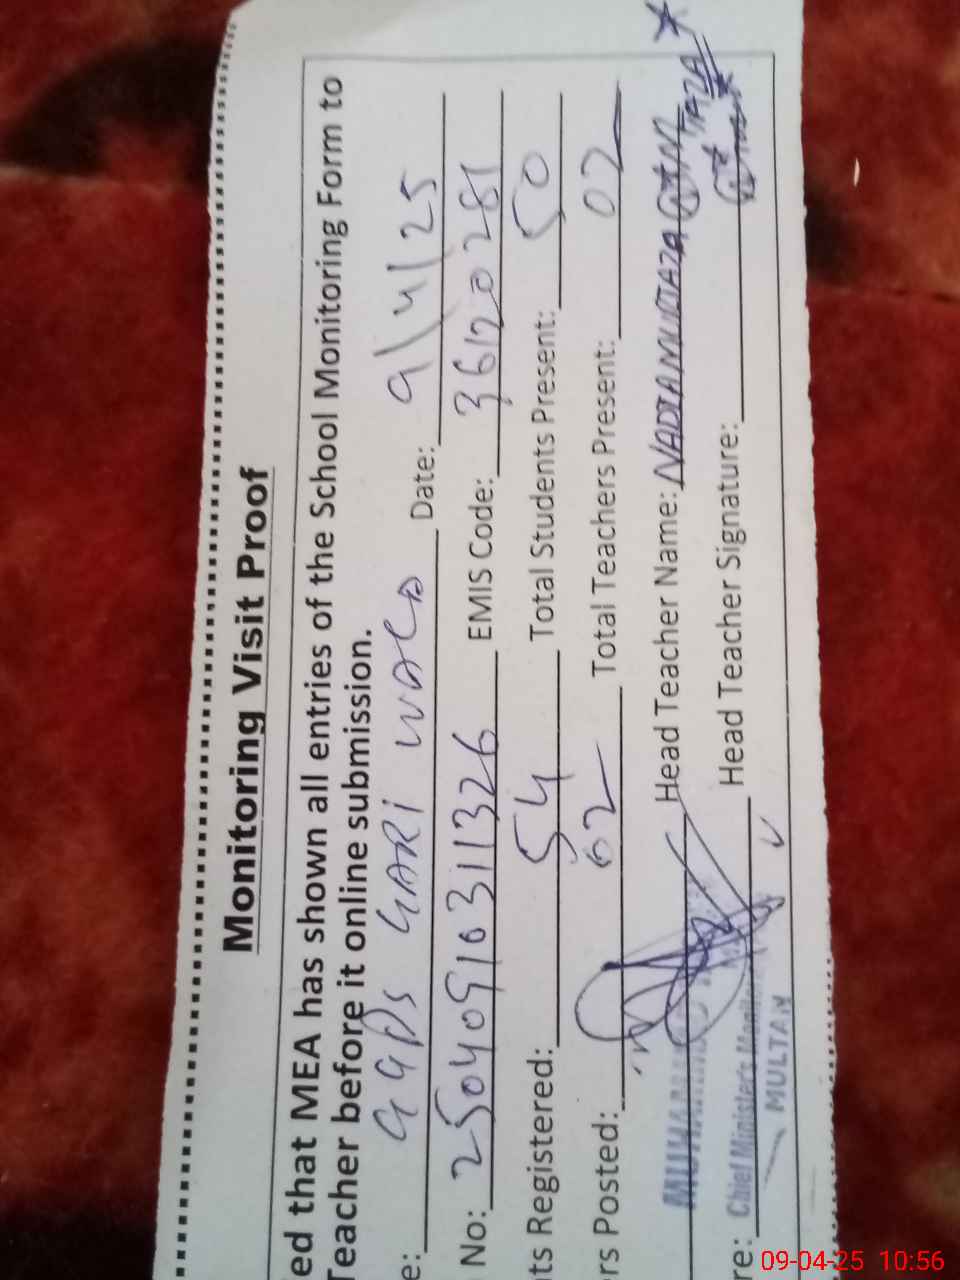 Monitoring Visit Proof
ed that MEA has shown all entries of the School Monitoring Form to
Teacher before it online submission.
e: GGPS GARI WALA Date: 9/4/25
No: 25040916311326 EMIS Code: 36120281
ts Registered: 54 Total Students Present: 50
rs Posted: 02 Total Teachers Present: 02
Head Teacher Name: NADIA MURTAZA
re: Chief Minister's Head Teacher Signature:
MULTAN
09-04-25 10:56